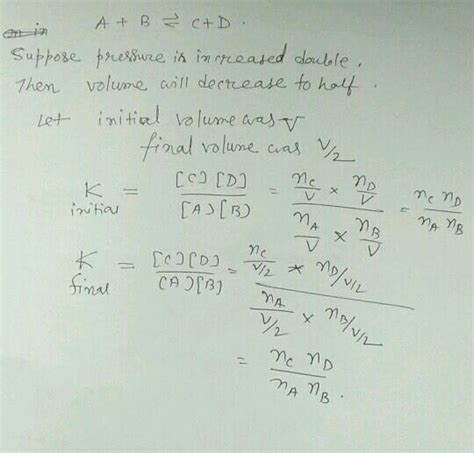 A + B ⇌ C + D .
Suppose pressure is increased double.
Then volume will decrease to half .
Let initial volume was V
final volume was V/2
K initial = [C] [D] / [A] [B] = n_C/V × n_D/V / n_A/V × n_B/V = n_C n_D / n_A n_B
K final = [C] [D] / [A] [B] = n_C/V/2 × n_D/V/2 / n_A/V/2 × n_B/V/2
= n_C n_D / n_A n_B .